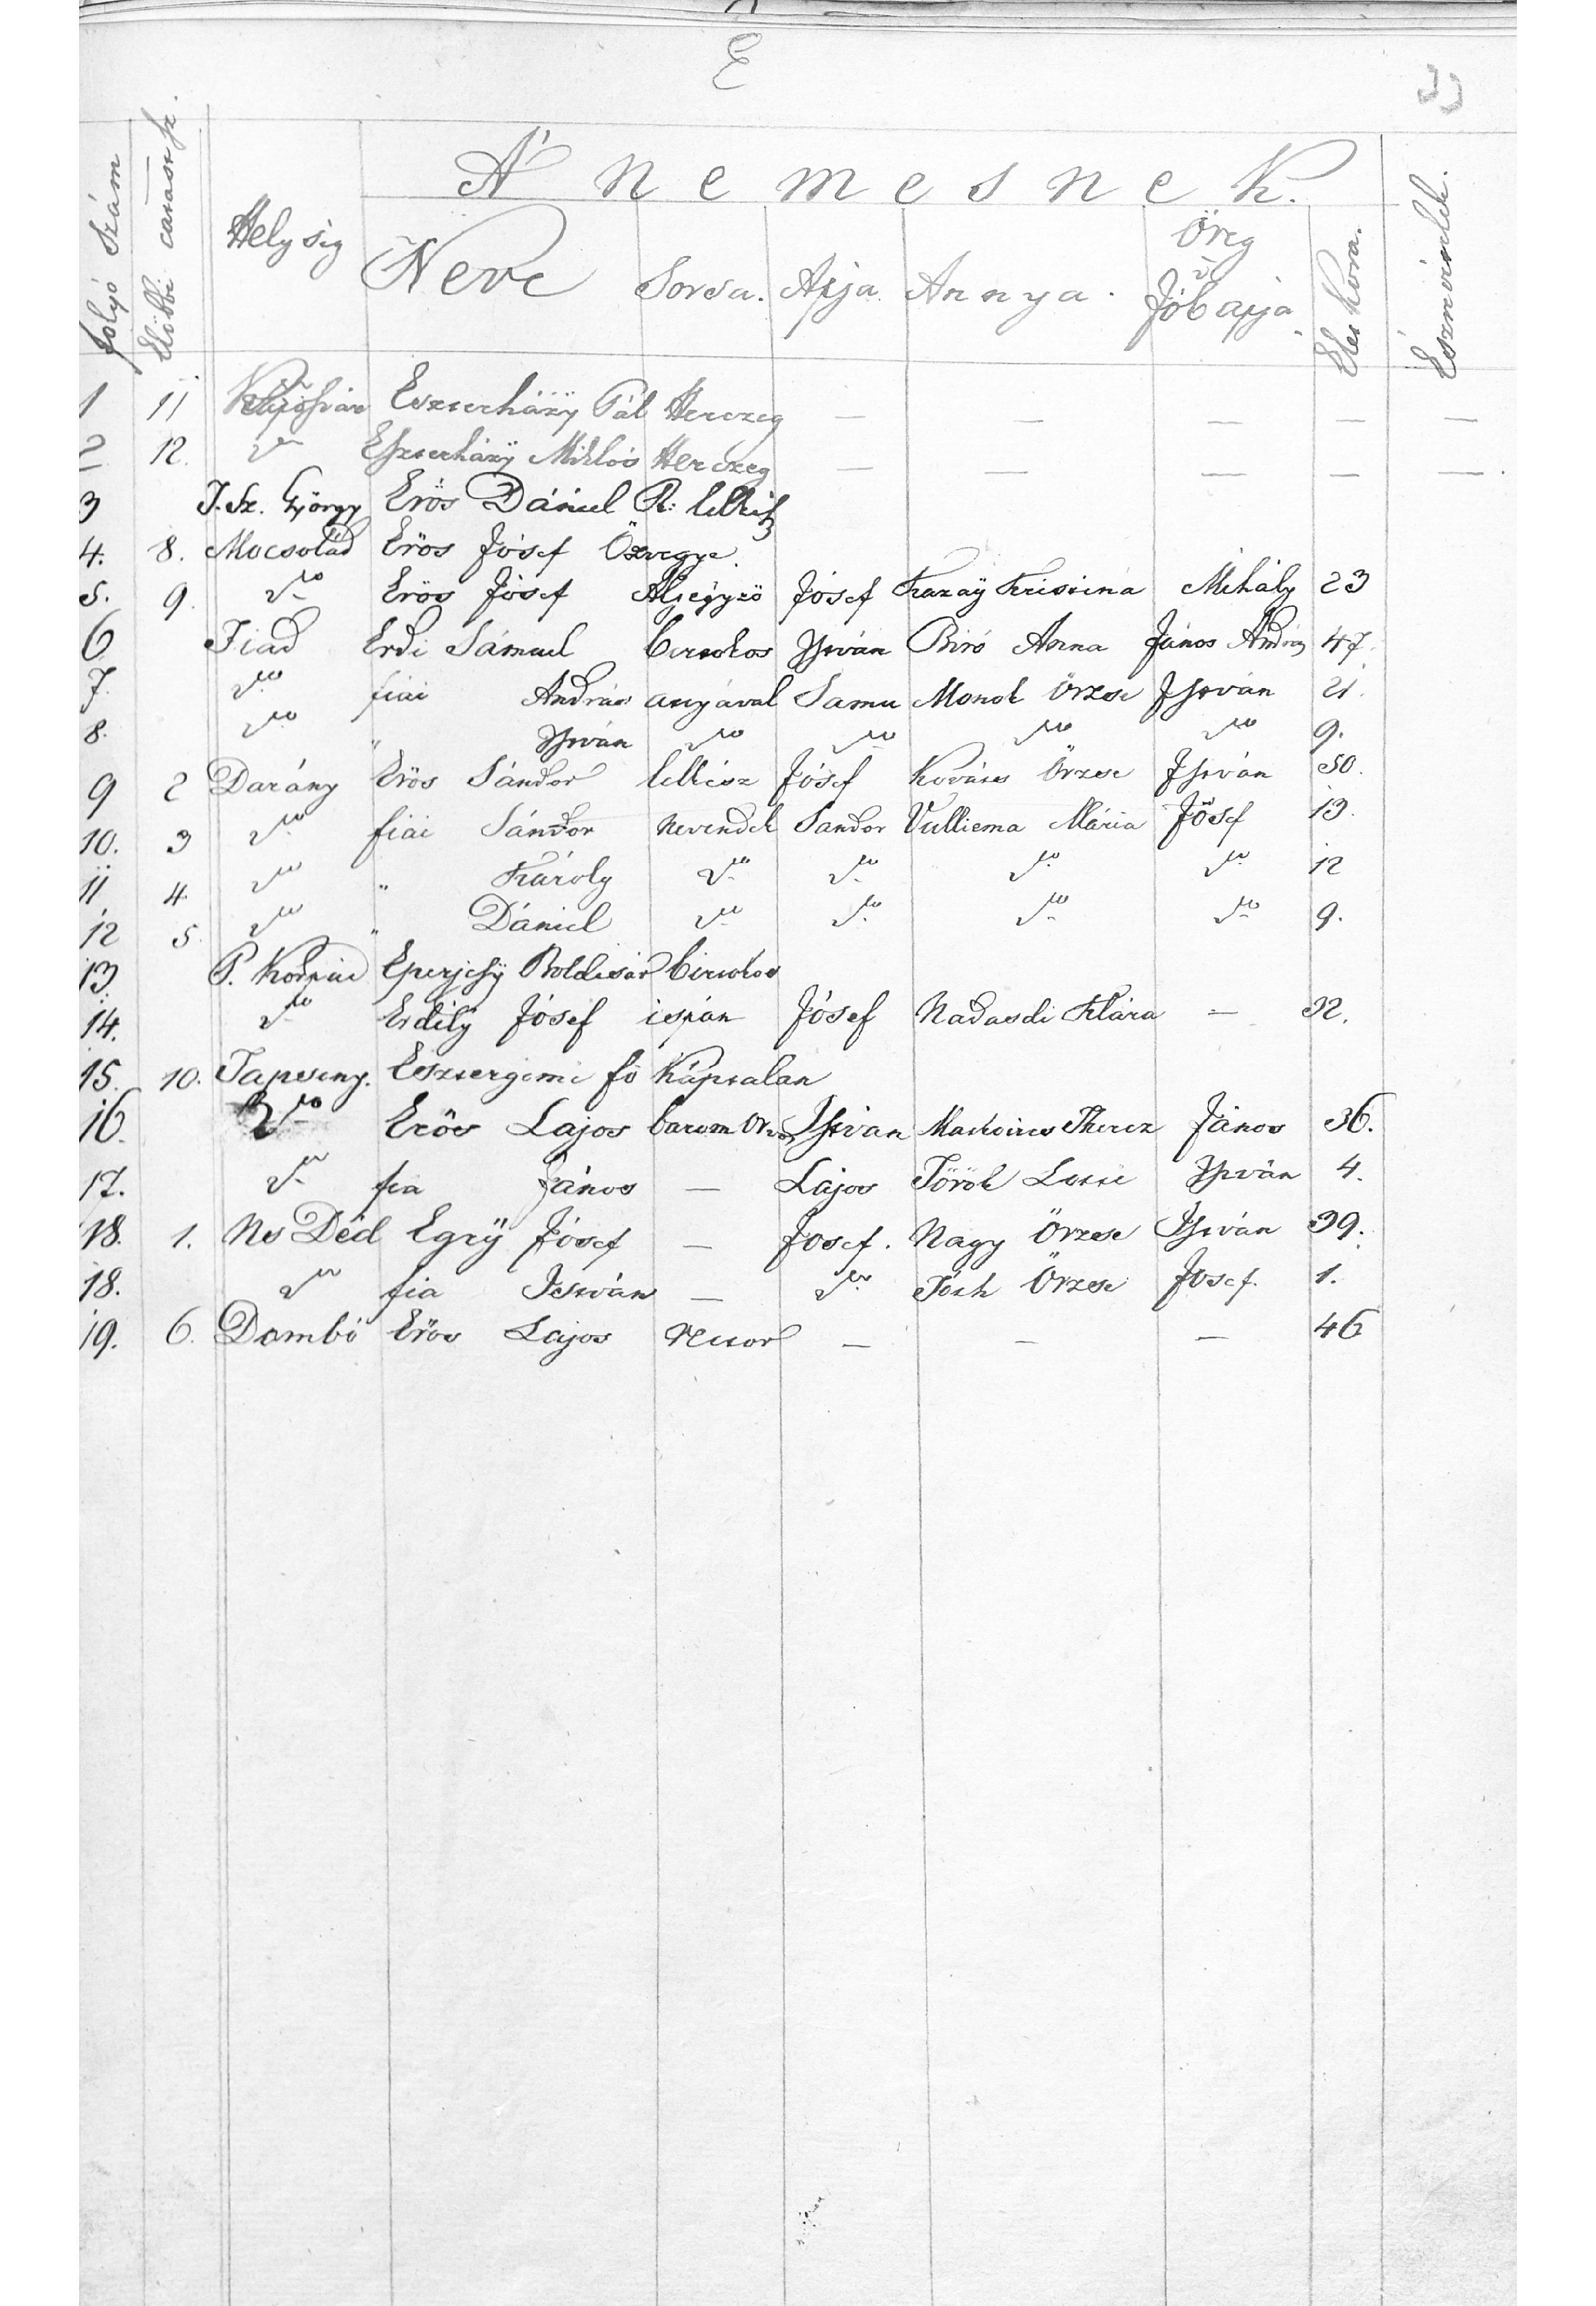 E
33
Folyó Szám
Elöbbi
Helység
A' nemesnek.
Neve
Sorsa.
Apja
Annya.
Öreg
Jóbapja
Élet kora.
Észrevételek.
1 11 Kaposvár Eszterházÿ Pál Herczeg — — — — —
2 12. do Eszterházÿ Miklós Herczeg — — — — —
3 I. Sz. György Erös Dániel R: lelkész
4. 8. Mocsolád Erös Jósef Özvegye.
5. 9. do Erös Jósef Aljegyzö Jósef Kazaÿ Kristina Mihály 23
6 Fiad Erdi Sámuel birtokos István Biró Anna János András 47.
7. do fiai András anyával Samu Monok Örzse István 21.
8. do " István do do do do 9.
9 2 Darány Erös Sándor lelkész Jósef Kovács Örzse István 50.
10. 3 do fiai Sándor nevendék Sandor Vulliema Mária Jósef 13.
11 4. do " Károly do do do do 12
12 5. do " Dániel do do do do 9.
13. P. Kárpád Eperjesÿ Boldisár birtokos
14. do Erdélÿ Jósef ispán Jósef Nadasdi Klára — 32.
15. 10. Tapsony. Esztergomi fö Káptalan
16. do Erös Lajos barom Orvos István Therez János 36.
17. do fia János — Lajos Török István 4.
18. 1. Ns Déd Egrÿ Jósef — Josef. Nagy Örzse István 39.
18. do fia István — do Tóth Örzse Josef. 1.
19. 6. Dombó Erös Lajos rector — — — 46